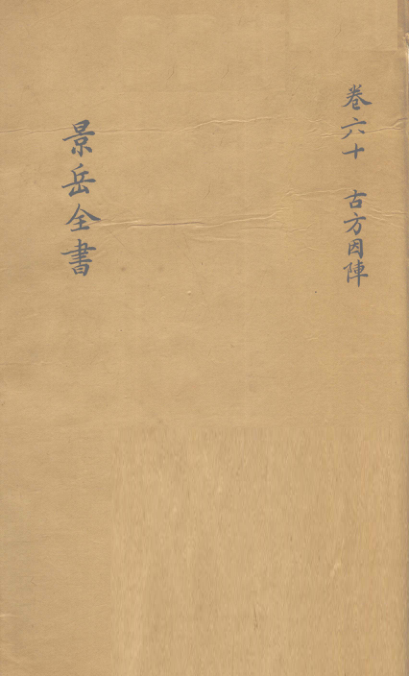 卷六十 古方因陣
景岳全書